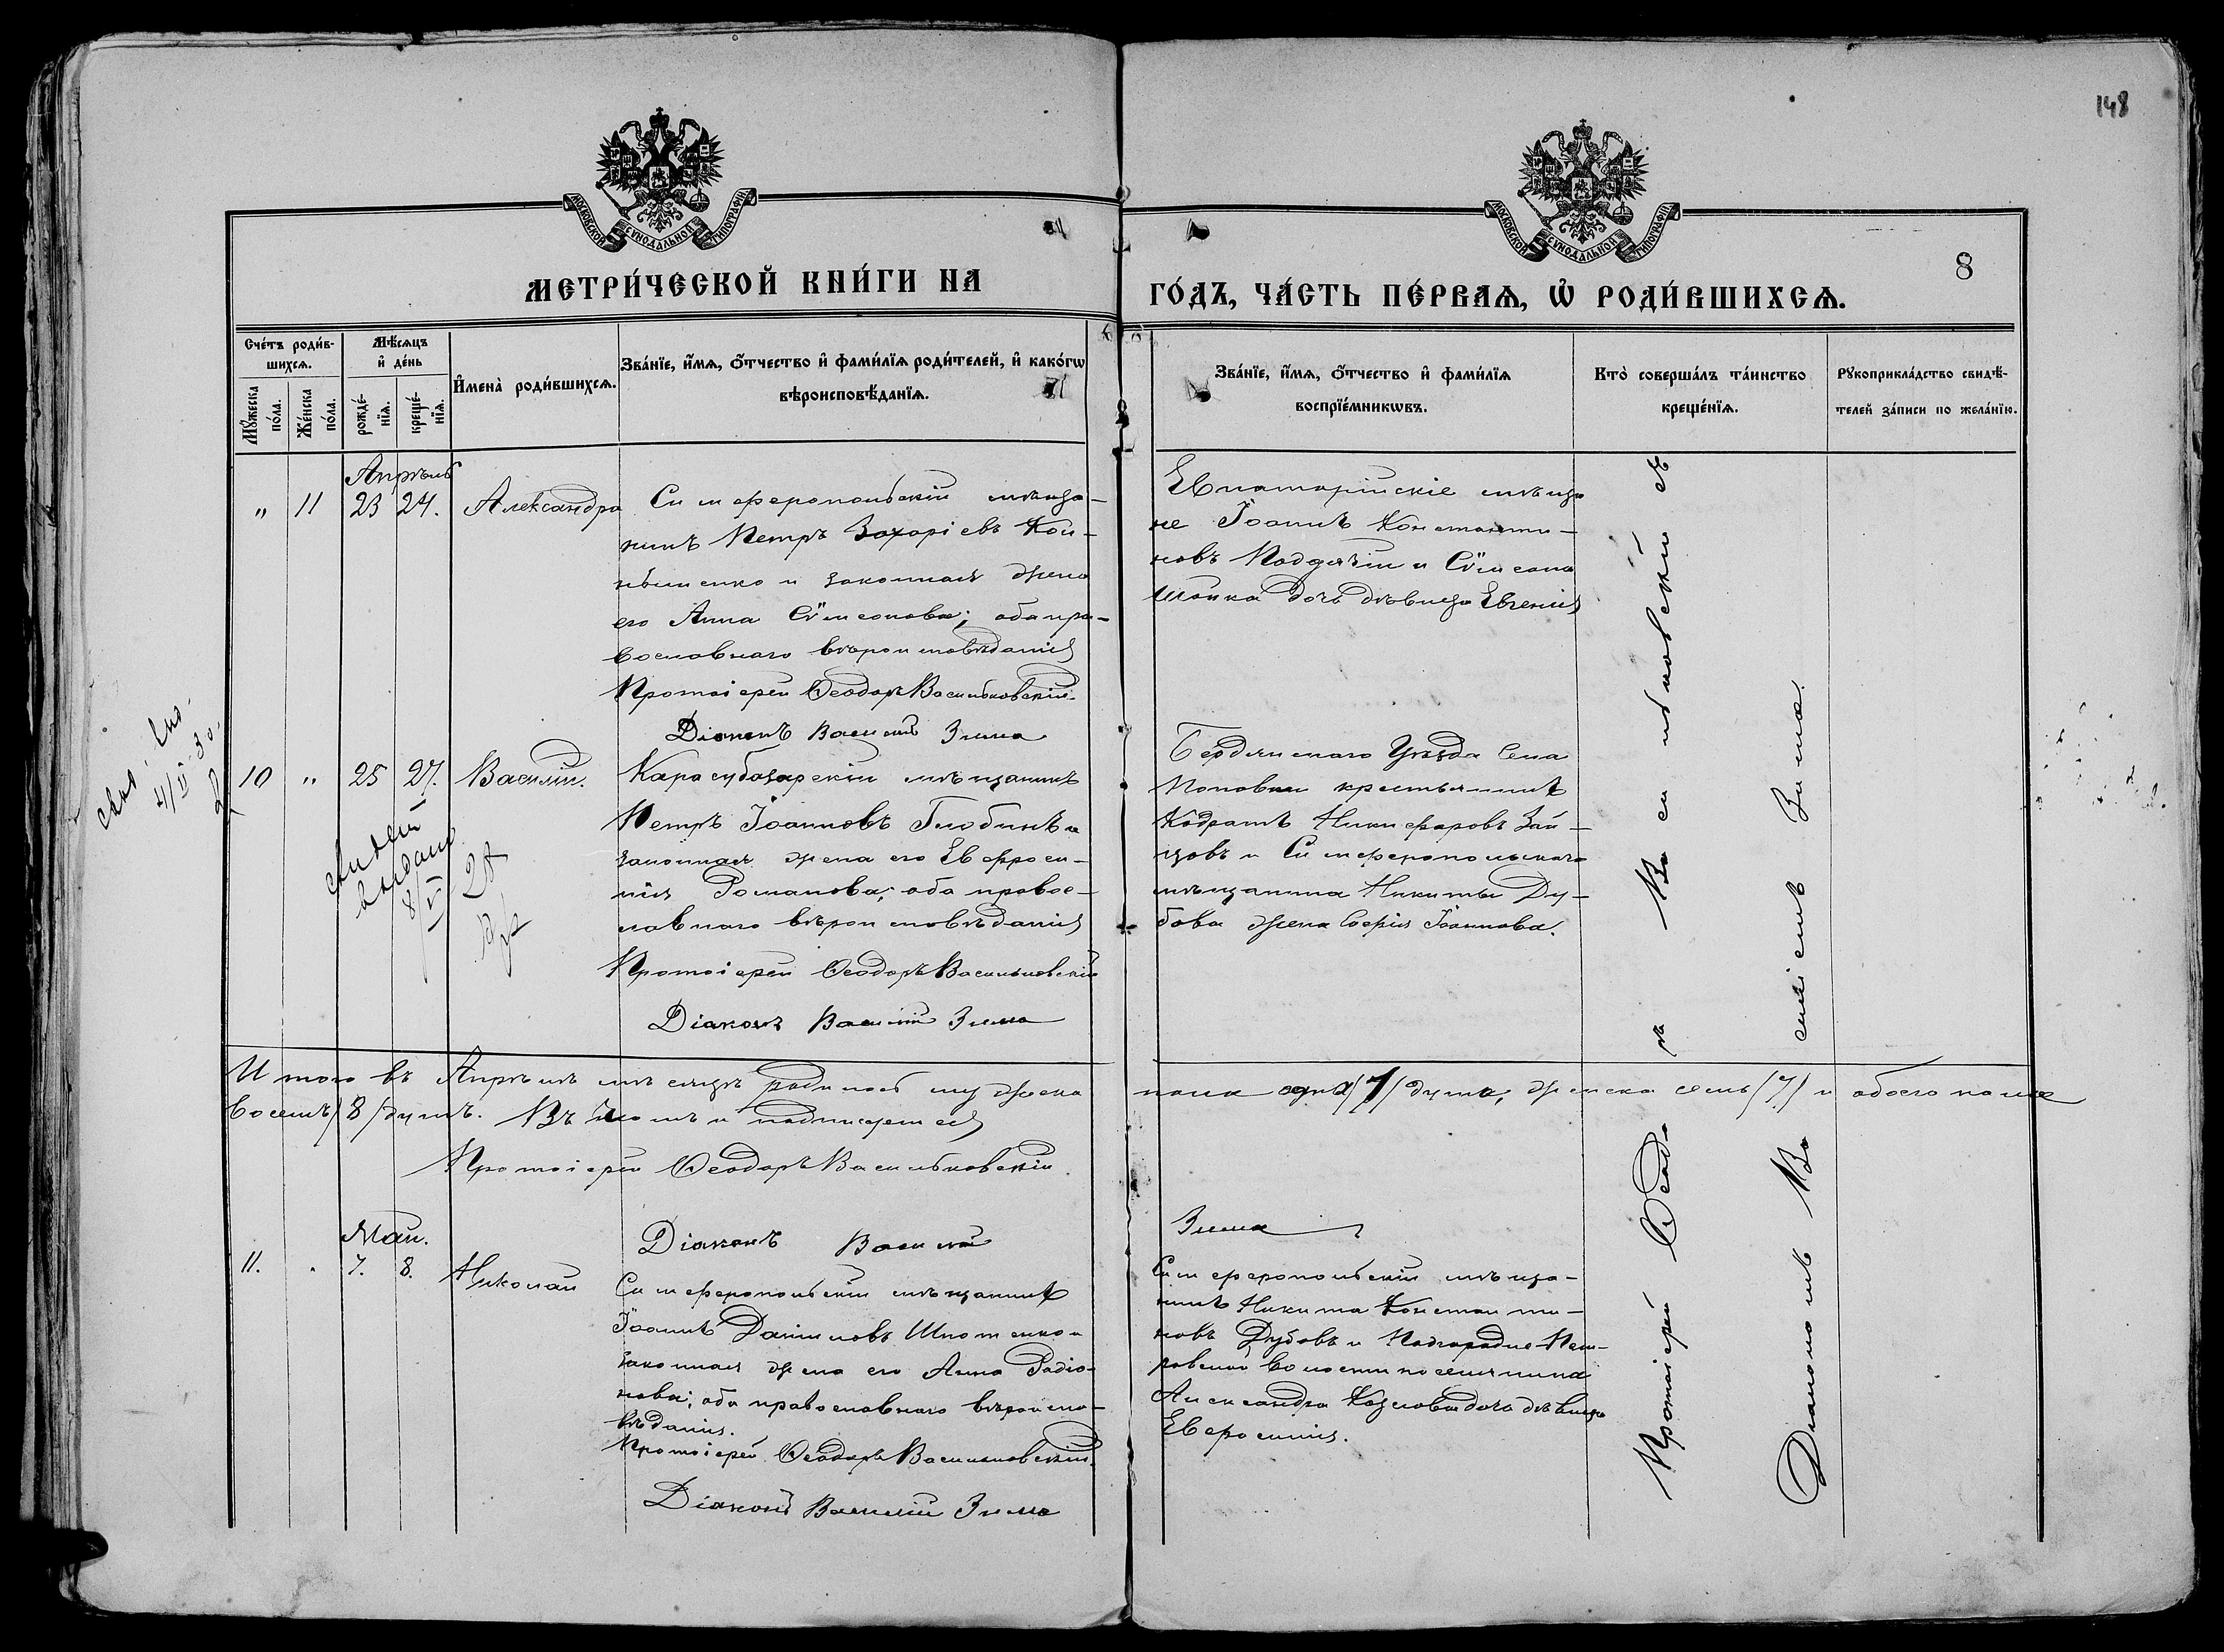 148
МОСКОВСКОЙ СѴНОДАЛЬНОЙ ТИПОГРАФІИ
МОСКОВСКОЙ СѴНОДАЛЬНОЙ ТИПОГРАФІИ
8
МЕТРИ́ЧЕСКОЙ КНИ́ГИ НА
ГО́ДЪ, ЧА́СТЬ ПЕ́РВАѦ, Ѡ҆ РОДИ́ВШИХСѦ.
Сче́тъ роди́в-
шихсѧ.
Мꙋ́жеска
по́ла.
Же́нска
по́ла.
Мѣ́сѧцъ
и҆ де́нь
рожде́-
нїѧ.
креще́-
нїѧ.
И҆мена̀ роди́вшихсѧ.
Зва́нїе, и҆́мѧ, ѻ҆́тчество и҆ фами́лїѧ роди́телей, и҆ како́гѡ
вѣроисповѣ́данїѧ.
Зва́нїе, и҆́мѧ, ѻ҆́тчество и҆ фами́лїѧ
воспрїе́мникѡвъ.
Кто̀ соверша́лъ та́инство
креще́нїѧ.
Рꙋкоприкла́дство свидѣ́-
телей за́писи по жела́нїю.
Апрѣль
" 11 23 24. Александра
Симферопольскій мѣща-
нинъ Петръ Захаріевъ Кон-
и законная жена
его Анна Сѵмеонова; оба пра-
вославнаго вѣроисповѣданія
Протоіерей Ѳеодоръ Васильковскій.
Діаконъ Василій Зима
Евпаторійскіе мѣща
не Іоаннъ Константи-
новъ и Сѵмеона
дочь дѣвица Евгенія
10 " 25 27. Василій.
Карасубазарскій мѣщанинъ
Петръ Іоанновъ Глобинъ и
законная жена его Евфроси-
нія Романова; оба правос-
лавнаго вѣроисповѣданія
Протоіерей Ѳеодоръ Васильковскій
Діаконъ Василій Зима
Бердянскаго Уѣзда Села
Поповки крестьянинъ
Кодратъ Никифоровъ Зай-
цовъ и Симферопольскаго
мѣщанина Никиты Ду-
бова жена Софія Іоаннова.
8/V 28
Итого въ Апрѣлѣ мѣсяцѣ родилось мужеска
пола одна /1/ душа, женска семь /7/ и обоего пола
восемь /8/ душъ. Въ чемъ и подписуемся
Протоіерей Ѳеодоръ Васильковскій.
Діаконъ Василій
Зима
Май.
11. . 7. 8. Николай
Симферопольскій мѣщанинъ
Іоаннъ Даніиловъ и
законная жена его Анна Радіо-
нова; оба православнаго вѣроиспо-
вѣданія.
Протоіерей Ѳеодоръ Васильковскій.
Діаконъ Василій Зима
Симферопольскій мѣща-
нинъ Никита Константи-
новъ Дубовъ и Подгородне-Пет-
ровской волости поселянина
Александра Козлова дочь дѣвица
Евфросинія.
Протоіерей Ѳеодоръ Васильковскій съ
Діакономъ Василіемъ Зима.